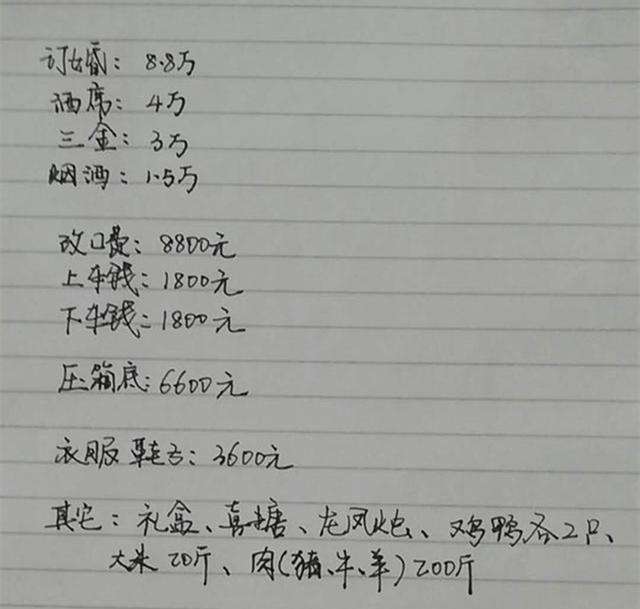 订婚：8.8万
酒席：4万
三金：3万
烟酒：1.5万
改口费：8800元
上车钱：1800元
下车钱：1800元
压箱底：6600元
衣服鞋子：3600元
其它：礼盒、喜糖、龙凤烛、鸡鸭各2只、
大米20斤、肉(猪、牛、羊)200斤